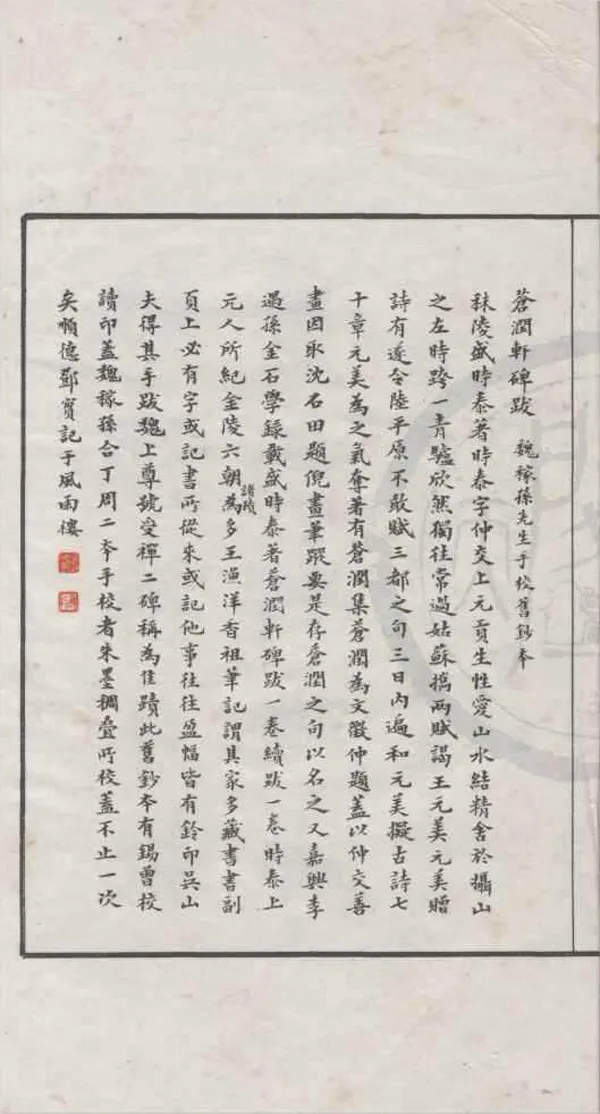 蒼潤軒碑跋 魏稼孫先生手校舊鈔本
秣陵盛時泰著時泰字仲交上元貢生性愛山水結精舍於攝山
之左時跨一青驢欣然獨往常過姑蘇携兩賦謁王元美元美贈
詩有遂令陸平原不敢賦三都之句三日內遍和元美擬古詩七
十章元美為之氣奪著有蒼潤集蒼潤為文徵仲題蓋以仲交善
畫因取沈石田題倪畫筆蹤要是存蒼潤之句以名之又嘉興李
遇孫金石學録載盛時泰著蒼潤軒碑跋一卷續跋一卷時泰上
元人所紀金陵六朝諸蹟為多王漁洋香祖筆記謂其家多藏書書副
頁上必有字或記書所從來或記他事往往盈幅皆有鈐印吳山
夫得其手跋魏上尊號受禪二碑稱為佳蹟此舊鈔本有錫曾校
讀印蓋魏稼孫合丁周二本手校者朱墨稠疊所校蓋不止一次
矣順德鄧實記于風雨樓